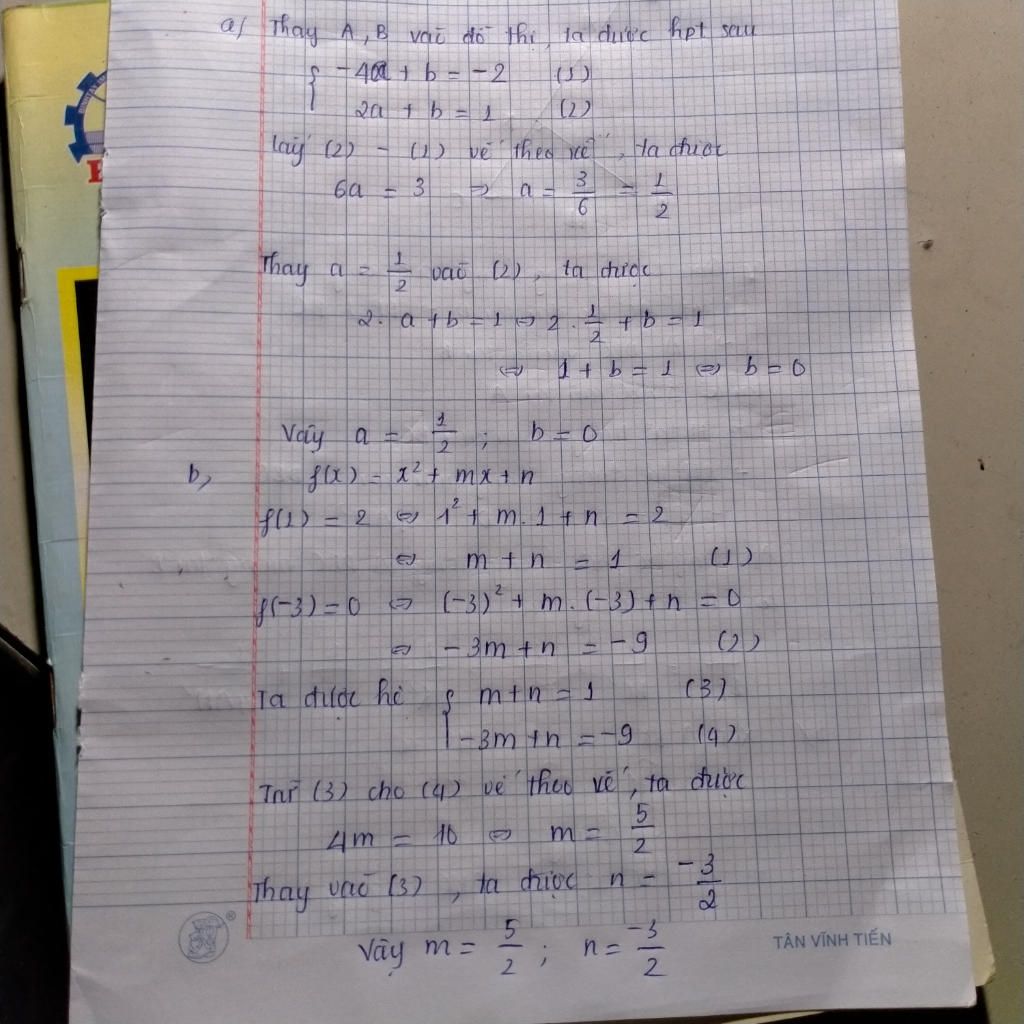 a/ Thay A, B vào đồ thị, ta được hpt sau
{ -4a + b = -2 (1)
2a + b = 1 (2)
lấy (2) - (1) vế theo vế, ta được
6a = 3 => a = 3/6 = 1/2
Thay a = 1/2 vào (2), ta được
2. a + b = 1 <=> 2 . 1/2 + b = 1
<=> 1 + b = 1 <=> b = 0
Vậy a = 1/2 ; b = 0
b, f(x) = x² + mx + n
f(1) = 2 <=> 1² + m. 1 + n = 2
<=> m + n = 1 (1)
f(-3) = 0 <=> (-3)² + m. (-3) + n = 0
<=> -3m + n = -9 (2)
Ta được hệ { m + n = 1 (3)
-3m + n = -9 (4)
Trừ (3) cho (4) vế theo vế, ta được
4m = 10 <=> m = 5/2
Thay vào (3), ta được n = -3/2
Vậy m = 5/2 ; n = -3/2
® TÂN VĨNH TIẾN